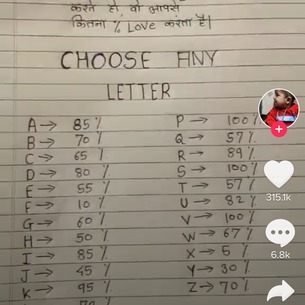 करते हो, वो आपसे
कितना % LOVE करता है।
CHOOSE ANY
LETTER
A → 85%
B → 70%
C → 65
D → 80 %
E → 55 %
F → 10 %
G → 60 %
H → 50 %
I → 85%
J → 45 %
K → 95 %
P → 100%
Q → 57%
R → 89%
S → 100%
T → 57%
U → 82%
V → 100%
W → 67%
X → 5 %
Y → 30 %
Z → 70 %
315.1k
6.8k